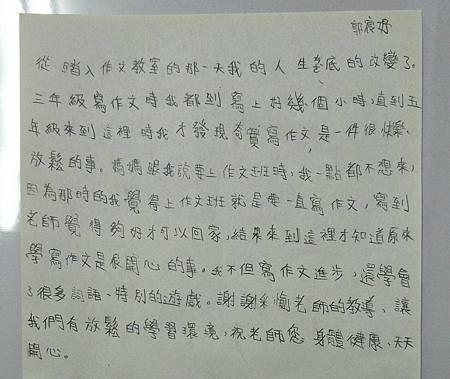 郭宸妤
從踏入作文教室的那一天我的人生老底的改變了。
三年級寫作文時我都到寫上好幾個小時,直到五
年級來到這裡時我才發現寫作文是一件很快樂、
放鬆的事。媽媽跟我說要上作文班時,我一點都不想來,
因為那時的我覺得上作文班就是要一直寫作文,寫到
老師覺得夠好才可以回家,結果來到這裡才知道原來
學寫作文是很開心的事。我不但寫作文進步,還學會
了很多詞語、特別的遊戲。謝謝采愉老師的教導、讓
我們有放鬆的學習環境,祝老師您身體健康、天天
開心。